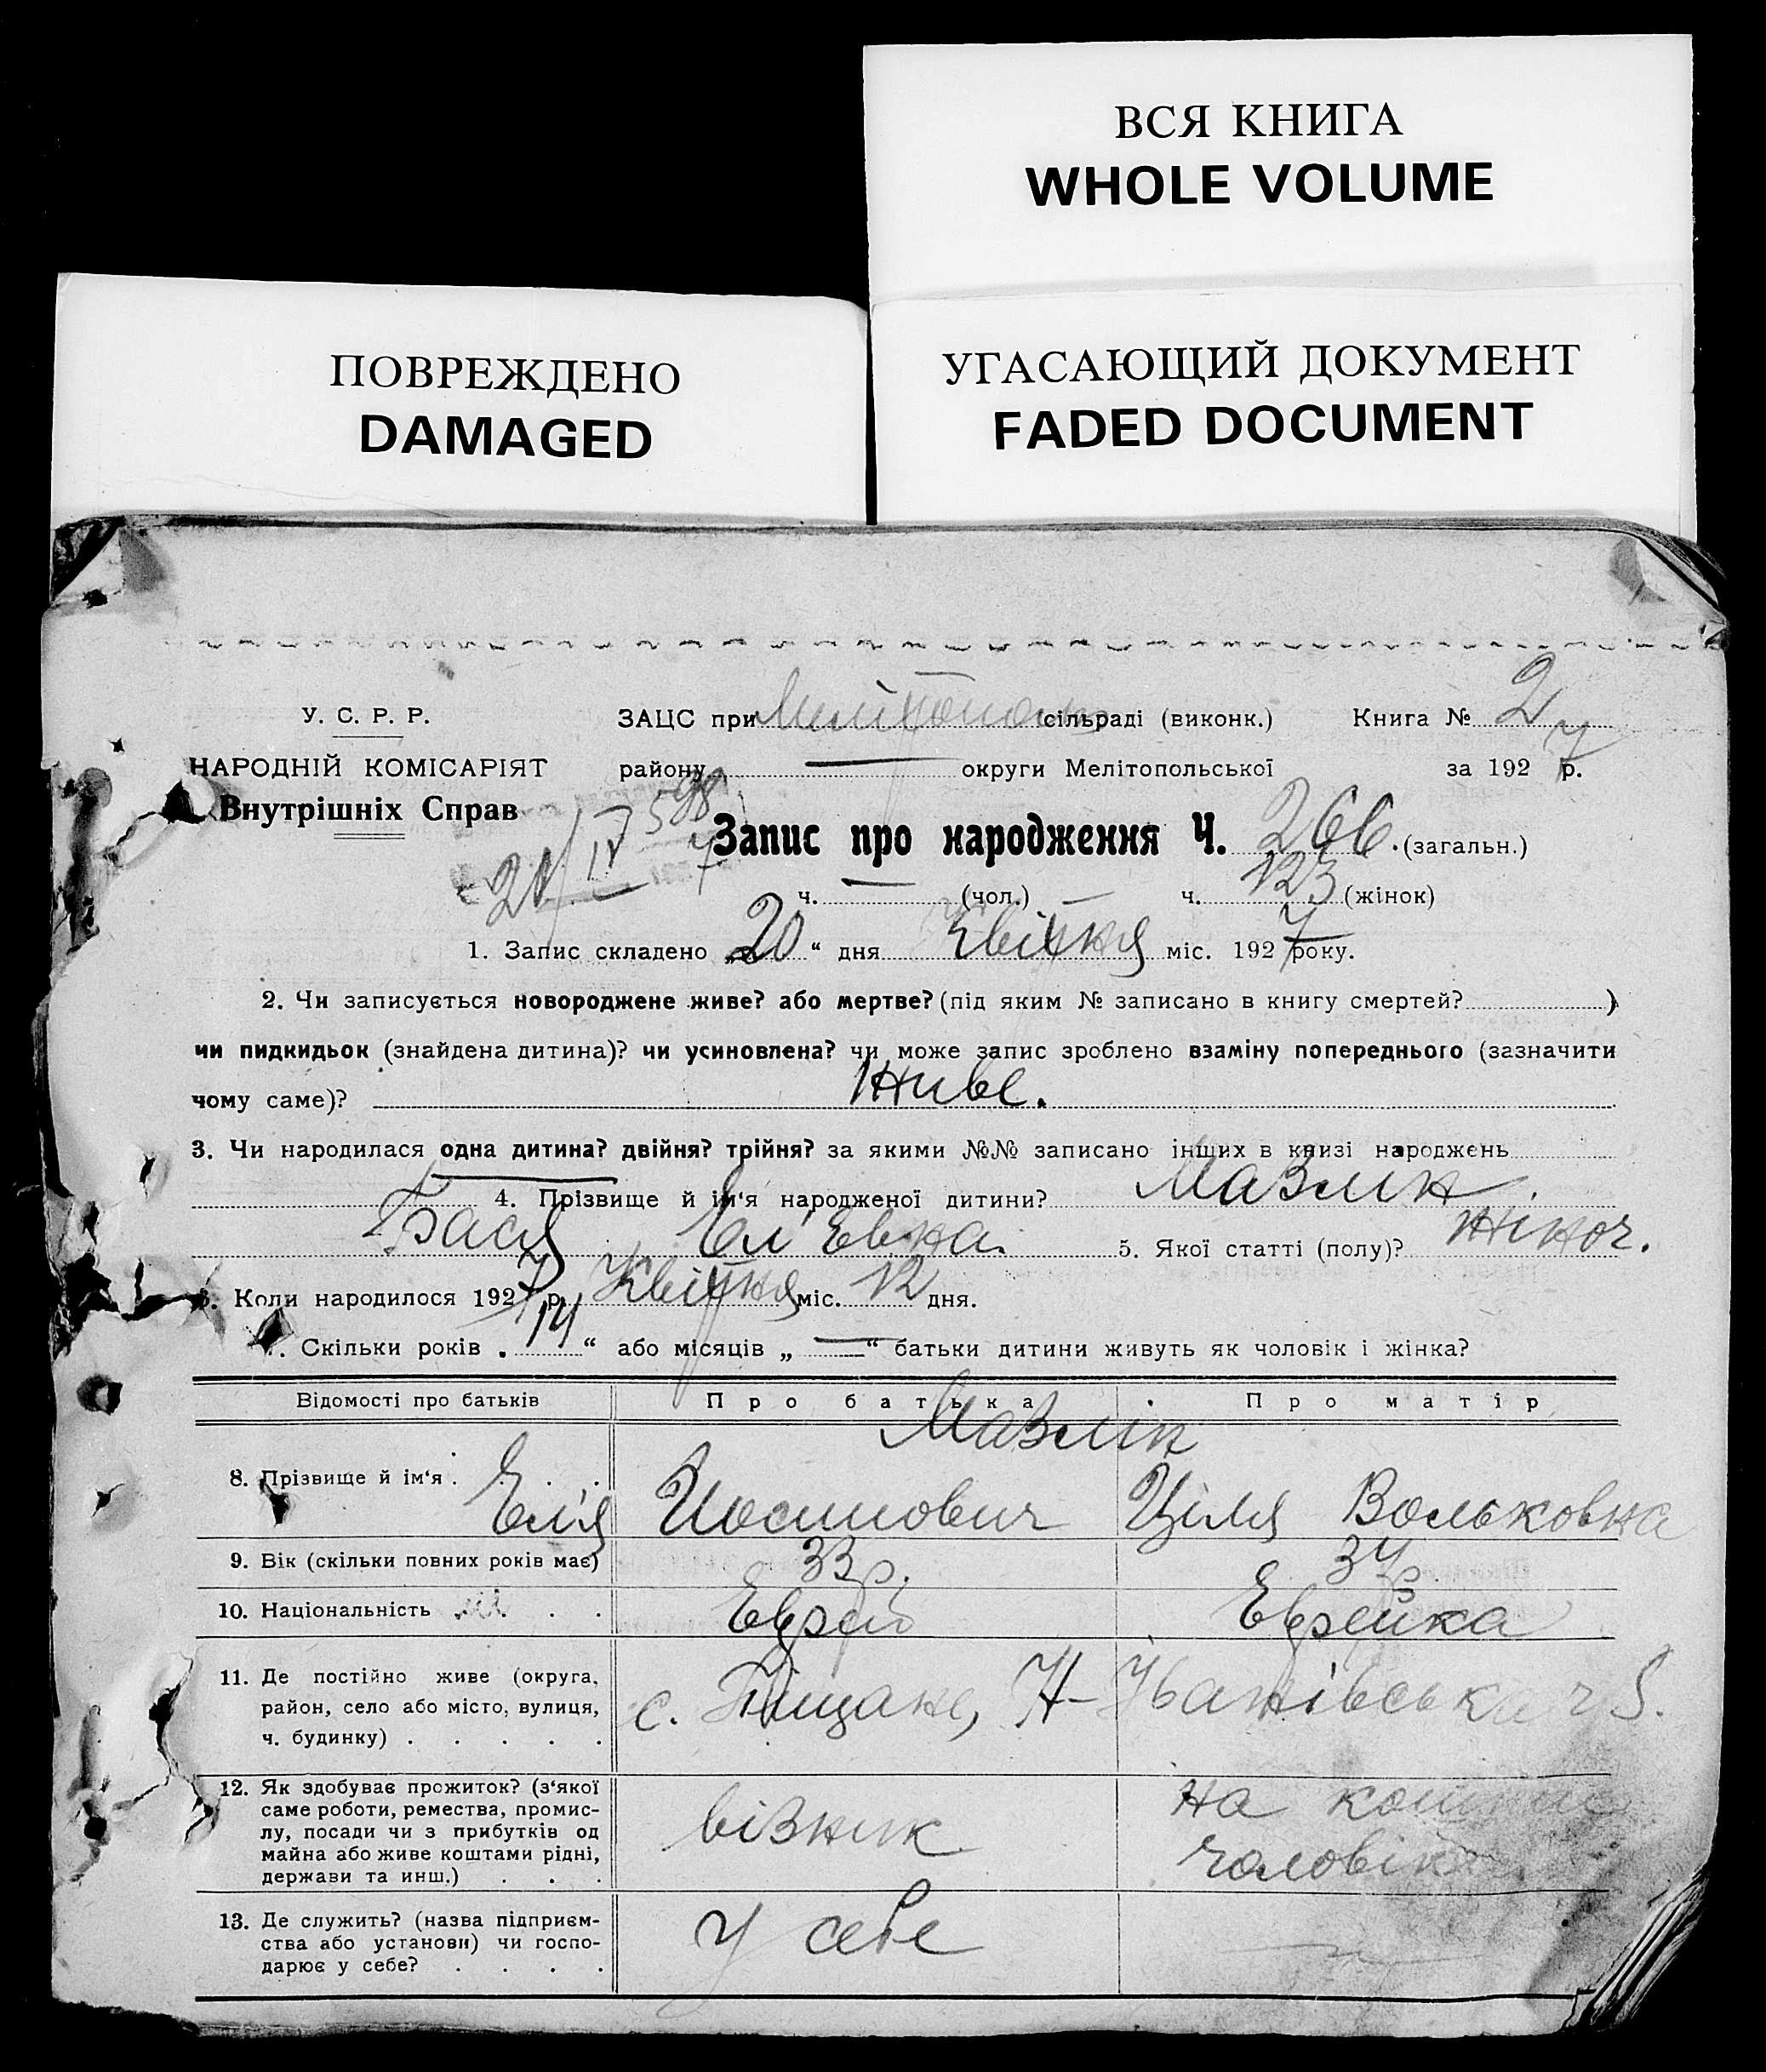 ВСЯ КНИГА
WHOLE VOLUME
ПОВРЕЖДЕНО
DAMAGED
УГАСАЮЩИЙ ДОКУМЕНТ
FADED DOCUMENT
У. С. Р. Р.
ЗАЦС при сільраді (виконк.) Книга № 2
НАРОДНІЙ КОМІСАРІЯТ
району — округи Мелітопольської за 1927 р.
Внутрішніх Справ
21/IV 598
7
Запис про народження Ч. 266. (загальн.)
ч. — (чол.) ч. 123 (жінок)
1. Запис складено „20“ дня Квітня міс. 1927 року.
2. Чи записується новороджене живе? або мертве? (під яким № записано в книгу смертей? )
чи пидкидьок (знайдена дитина)? чи усиновлена? чи може запис зроблено взаміну попереднього (зазначити
чому саме)? живе.
3. Чи народилася одна дитина? двійня? трійня? за якими №№ записано інших в книзі народжень
4. Прізвище й ім‘я народженої дитини? Мазлин
Бася Ел'евна. 5. Якої статті (полу)? жіноч.
6. Коли народилося 1927 р. Квітня міс. 12 дня.
7. Скільки років „14“ або місяців „—“ батьки дитини живуть як чоловік і жінка?
Відомості про батьків Про батька Про матір
Мазлин
8. Прізвище й ім‘я . Ел'я Иосипович Ціля Вольковна
9. Вік (скільки повних років має) 33 р. 34 р.
10. Національність Еврей Еврейка
11. Де постійно живе (округа,
район, село або місто, вулиця,
ч. будинку) . . . . .
с. Піщане, Н-Іванівська ч 5.
12. Як здобуває прожиток? (з‘якої
саме роботи, ремества, промис-
лу, посади чи з прибутків од
майна або живе коштами рідні,
держави та инш.) . . .
візник
на кошти
чоловіка
13. Де служить? (назва підприєм-
ства або установи) чи госпо-
дарює у себе? . . . .
у себе